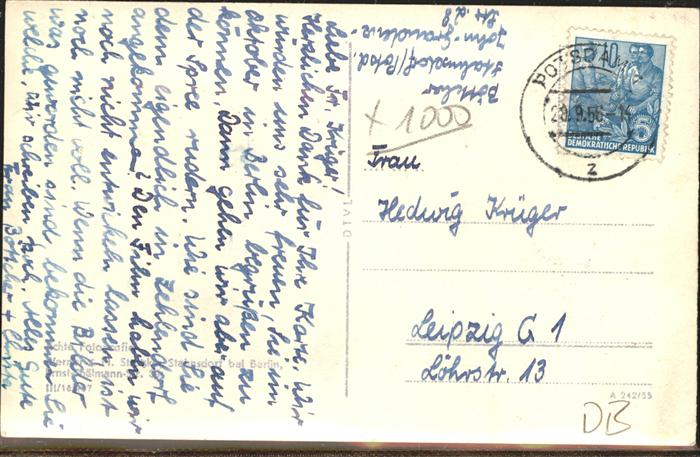 Liebe Fr. Krüger!
Herzlichen Dank für Ihre Karte. Wir
würden uns sehr freuen, Sie im
Oktober in Berlin begrüßen zu
können. Dann gehen wir aber auf
der Spree rudern. Wie sind Sie
denn eigendlich in Zehlendorf
angekommen? Den Film haben wir
noch nicht entwickeln lassen, er ist
noch nicht voll. Wenn die Bilder
was geworden sind, bekommen Sie
welche, wir schreiben noch. Alles Gute
Frau Böttcher +
Böttcher
Stahnsdorf/Potsd.
Str. a 8
x 1000
POTSDAM
28.9.56-14
Z
10+5
DEUTSCHE
DEMOKRATISCHE REPUBLIK
Frau
Hedwig Krüger
Leipzig C 1
Löhrstr. 13
A 242/55
DB
Echte Fotografie
Stahnsdorf bei Berlin,
Ernst-Thälmann-Str.
III/18/197